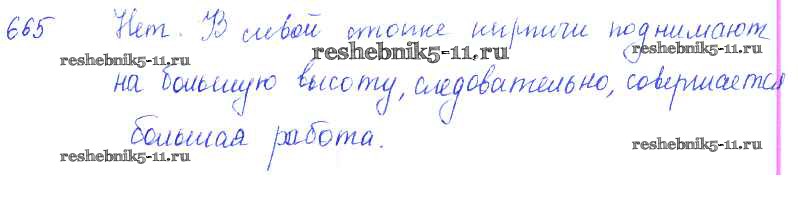 665 Нет. В левой стопке кирпичи поднимают
reshebnik5-11.ru reshebnik5-11.ru reshebnik5-11.ru
на большую высоту, следовательно, совершается
большая работа.
reshebnik5-11.ru reshebnik5-11.ru